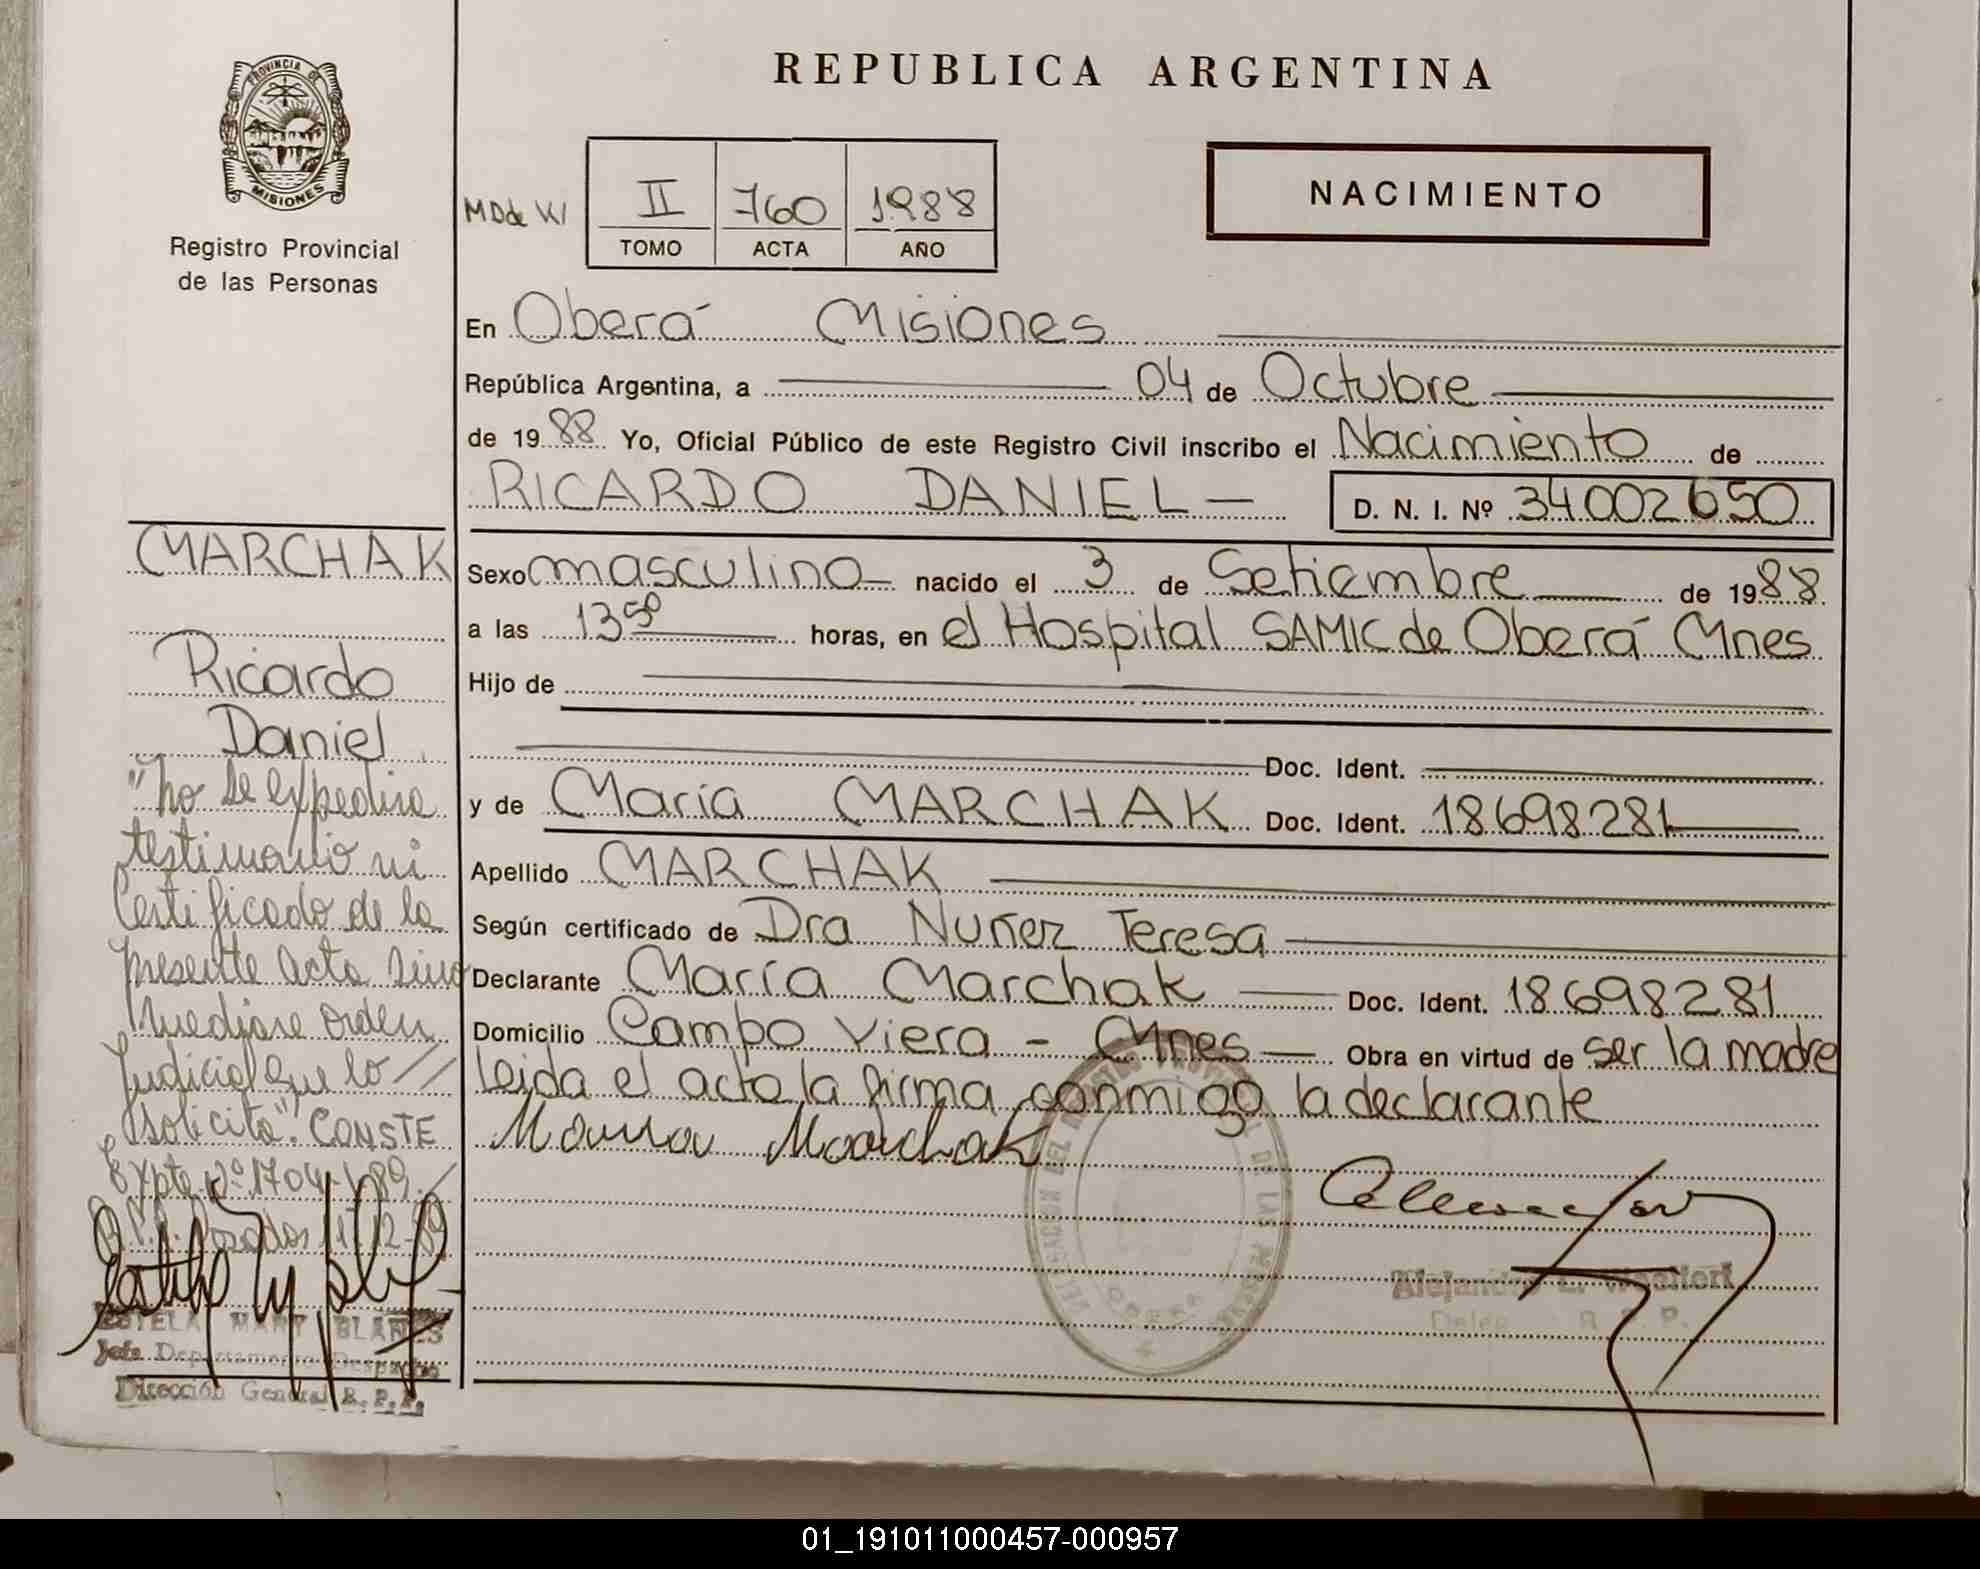 REPUBLICA ARGENTINA
PROVINCIA DE
MISIONES
Registro Provincial
de las Personas
MDde VI
II 760 1988
TOMO ACTA AÑO
NACIMIENTO
En Oberá Misiones
República Argentina, a 04 de Octubre
de 1988 Yo, Oficial Público de este Registro Civil inscribo el Nacimiento de
RICARDO DANIEL — D. N. I. Nº 34002650
MARCHAK
Ricardo
Daniel
"no se expedira
testimonio ni
Certificado de la
presente acta sino
mediare orden
Judicial que lo //
solicita". CONSTE
Expte. nº 1704-89
Posadas 11-12-89
ESTELA MARY BLANES
Jefe Departamento Despacho
Dirección General R. P. P.
Sexo masculino nacido el 3 de Setiembre de 1988
a las 13 50 horas, en el Hospital SAMIC de Oberá Mnes
Hijo de
Doc. Ident.
y de María MARCHAK Doc. Ident. 18698281
Apellido MARCHAK
Según certificado de Dra Nuñez Teresa
Declarante María Marchak Doc. Ident. 18698281
Domicilio Campo Viera - Mnes — Obra en virtud de ser la madre
leida el acta la firma conmigo la declarante
Maria Marchak
Alejandro
Deleg. R. P. P.
01_191011000457-000957